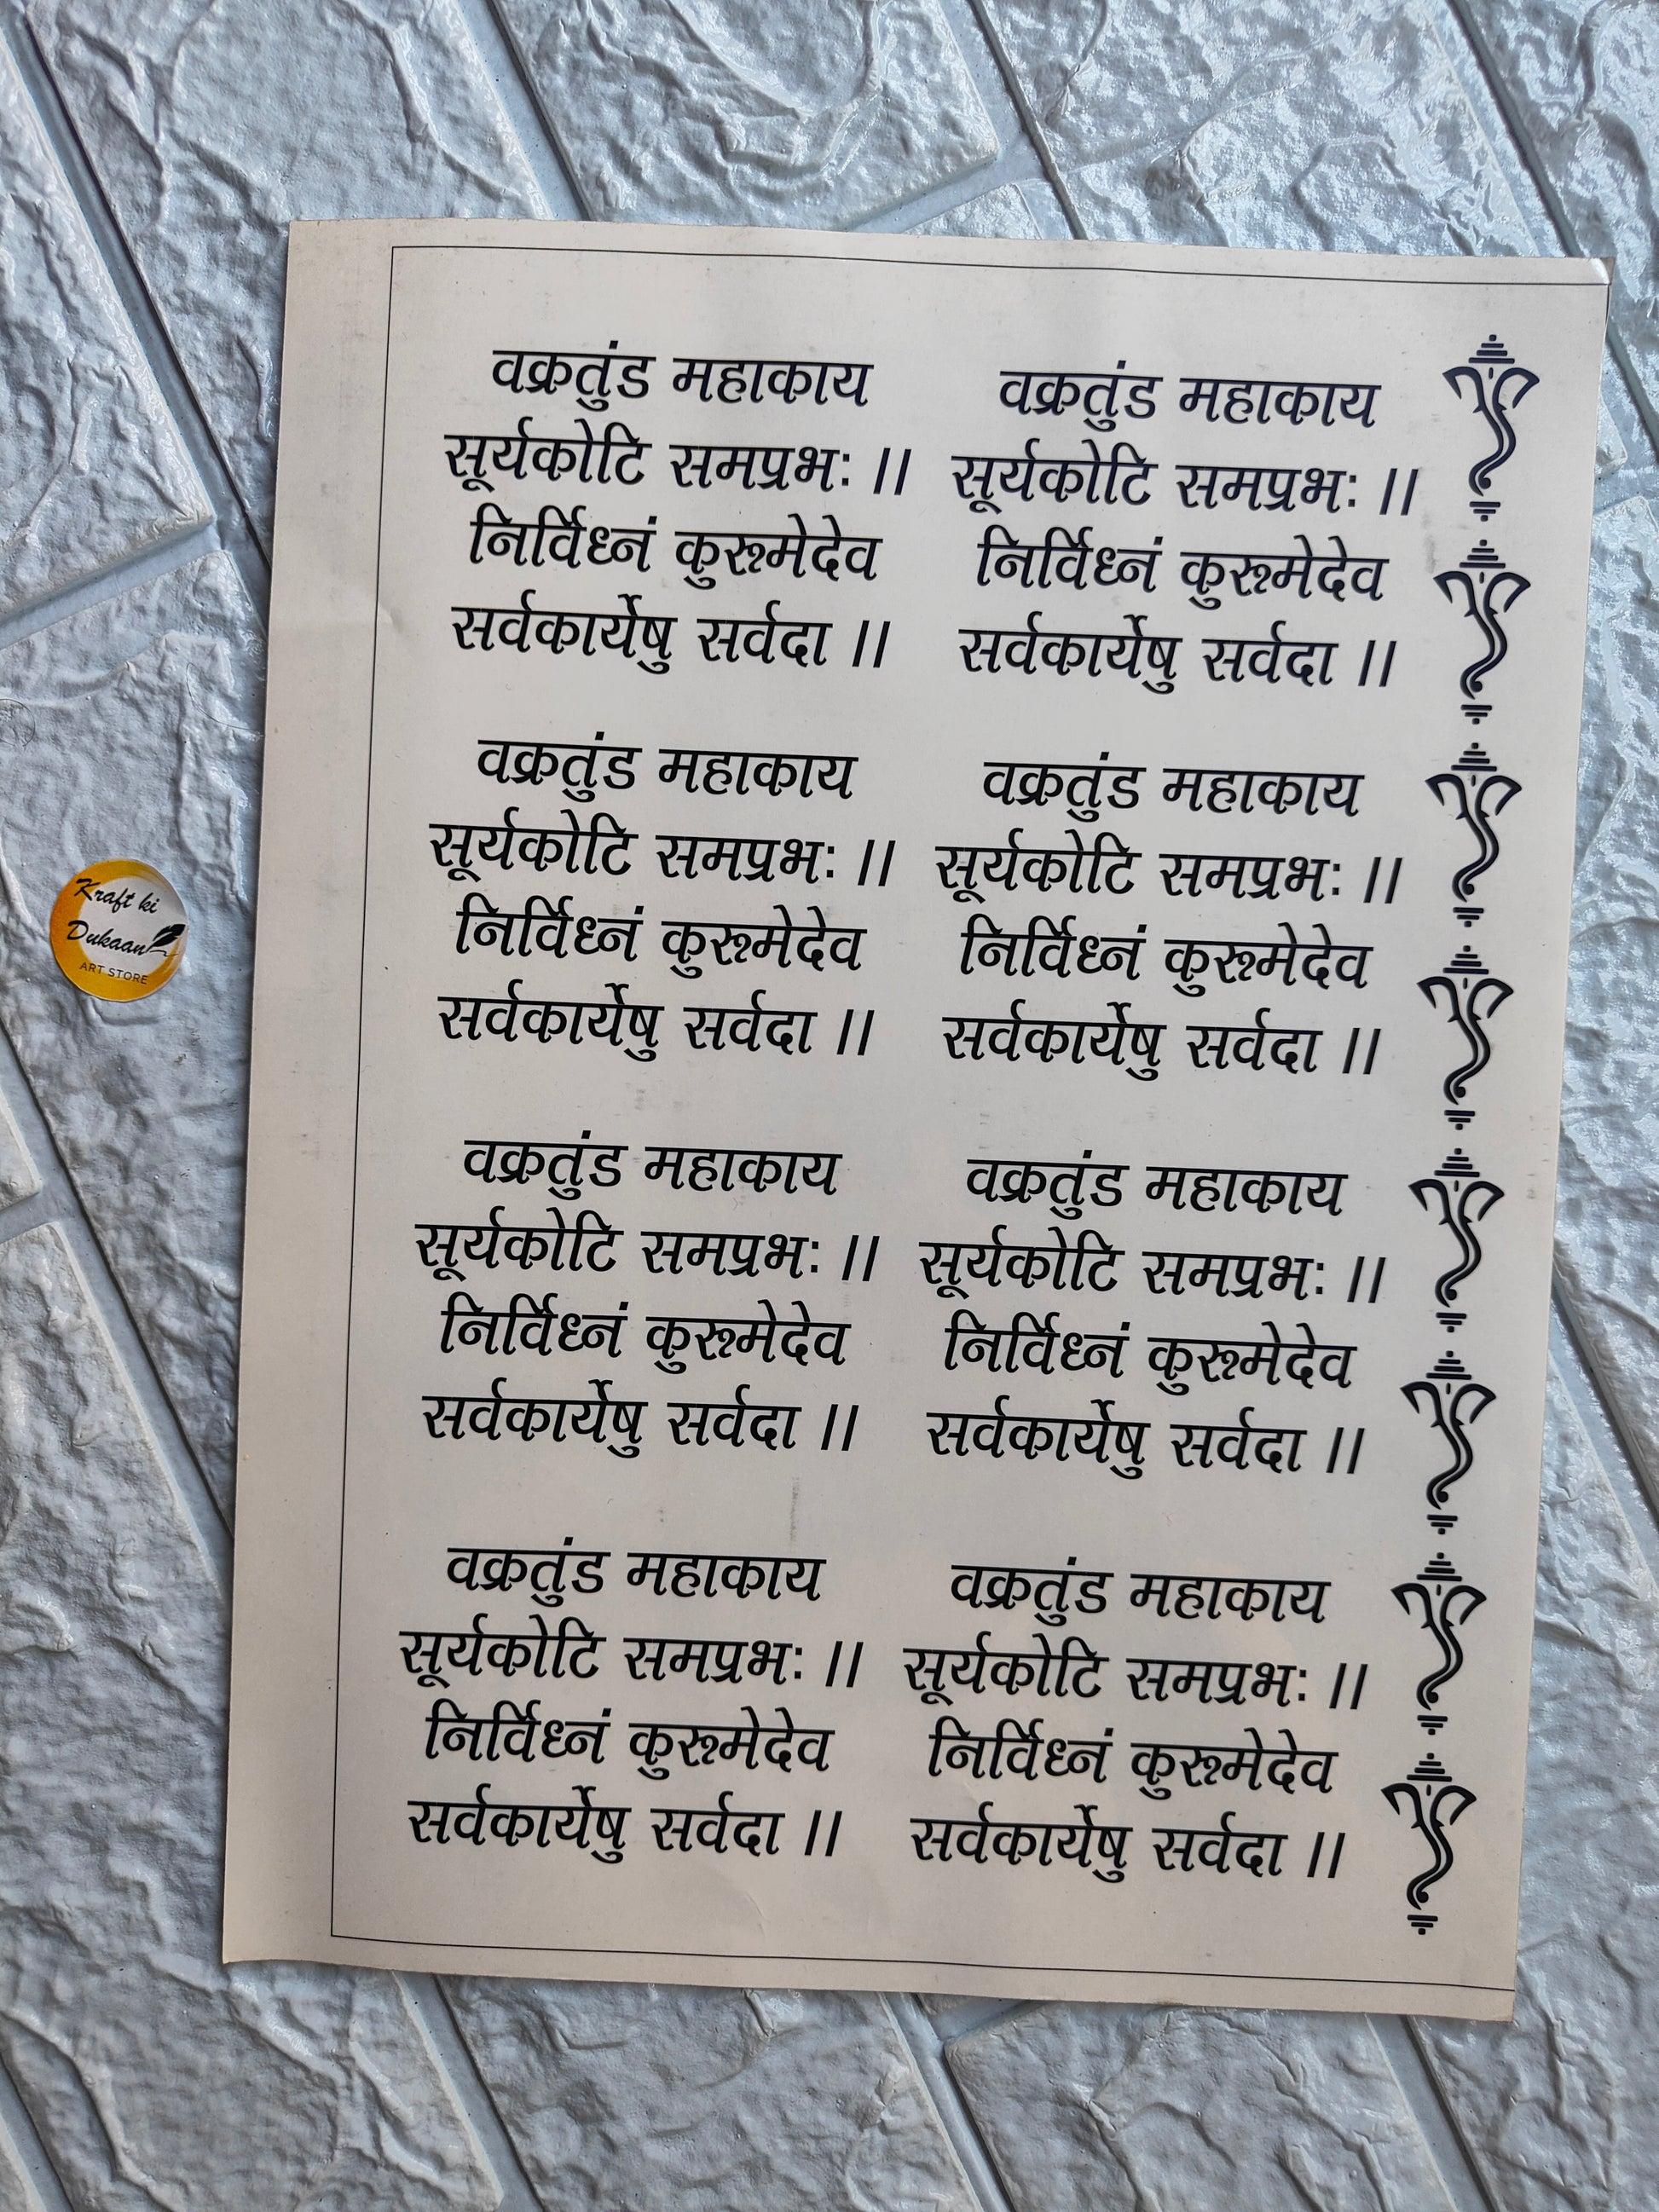 वक्रतुंड महाकाय
सूर्यकोटि समप्रभः ।।
निर्विध्नं कुरुमेदेव
सर्वकार्येषु सर्वदा ।।
वक्रतुंड महाकाय
सूर्यकोटि समप्रभः ।।
निर्विध्नं कुरुमेदेव
सर्वकार्येषु सर्वदा ।।
वक्रतुंड महाकाय
सूर्यकोटि समप्रभः ।।
निर्विध्नं कुरुमेदेव
सर्वकार्येषु सर्वदा ।।
वक्रतुंड महाकाय
सूर्यकोटि समप्रभः ।।
निर्विध्नं कुरुमेदेव
सर्वकार्येषु सर्वदा ।।
वक्रतुंड महाकाय
सूर्यकोटि समप्रभः ।।
निर्विध्नं कुरुमेदेव
सर्वकार्येषु सर्वदा ।।
वक्रतुंड महाकाय
सूर्यकोटि समप्रभः ।।
निर्विध्नं कुरुमेदेव
सर्वकार्येषु सर्वदा ।।
वक्रतुंड महाकाय
सूर्यकोटि समप्रभः ।।
निर्विध्नं कुरुमेदेव
सर्वकार्येषु सर्वदा ।।
वक्रतुंड महाकाय
सूर्यकोटि समप्रभः ।।
निर्विध्नं कुरुमेदेव
सर्वकार्येषु सर्वदा ।।
Kraft ki
Dukaan
ART STORE